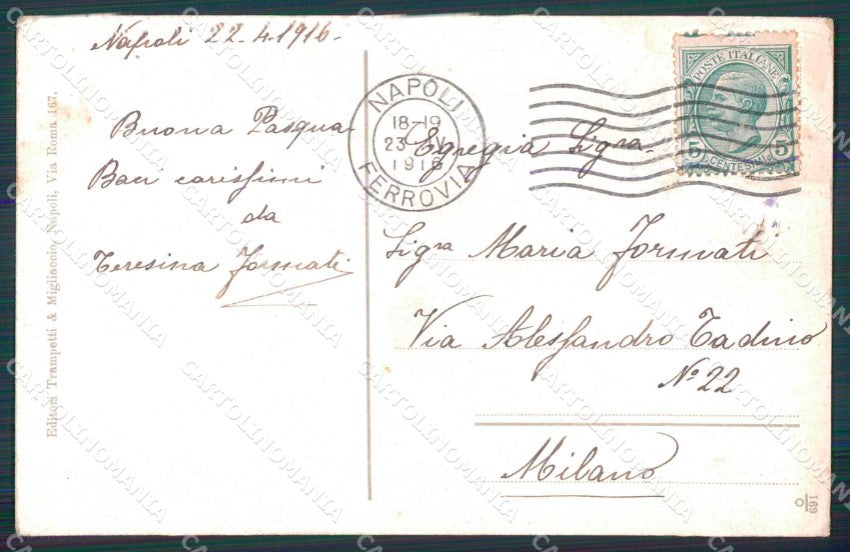 Napoli 22-4-1916-
Buona Pasqua
Baci carissimi
da
Teresina Formati
Editori Trampetti & Migliaccio, Napoli, Via Roma 167.
NAPOLI
18-19
23 IV
1916
FERROVIA
POSTE ITALIANE
5 CENTESIMI 5
Egregia Sigra
Sigra Maria Formati
Via Alessandro Tadino
No 22
Milano
169
CARTOLINOMANIA